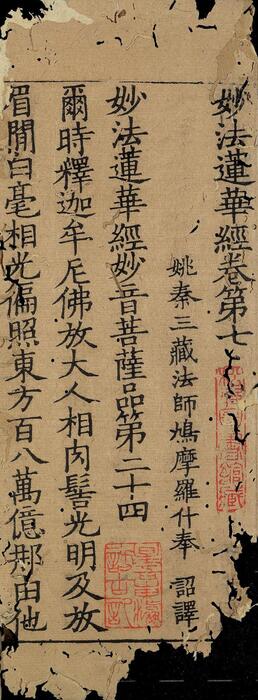 妙法蓮華經卷第七
姚秦三藏法師鳩摩羅什奉 詔譯
妙法蓮華經妙音菩薩品第二十四
爾時釋迦牟尼佛放大人相肉髻光明及放
眉間白毫相光徧照東方百八萬億那由他